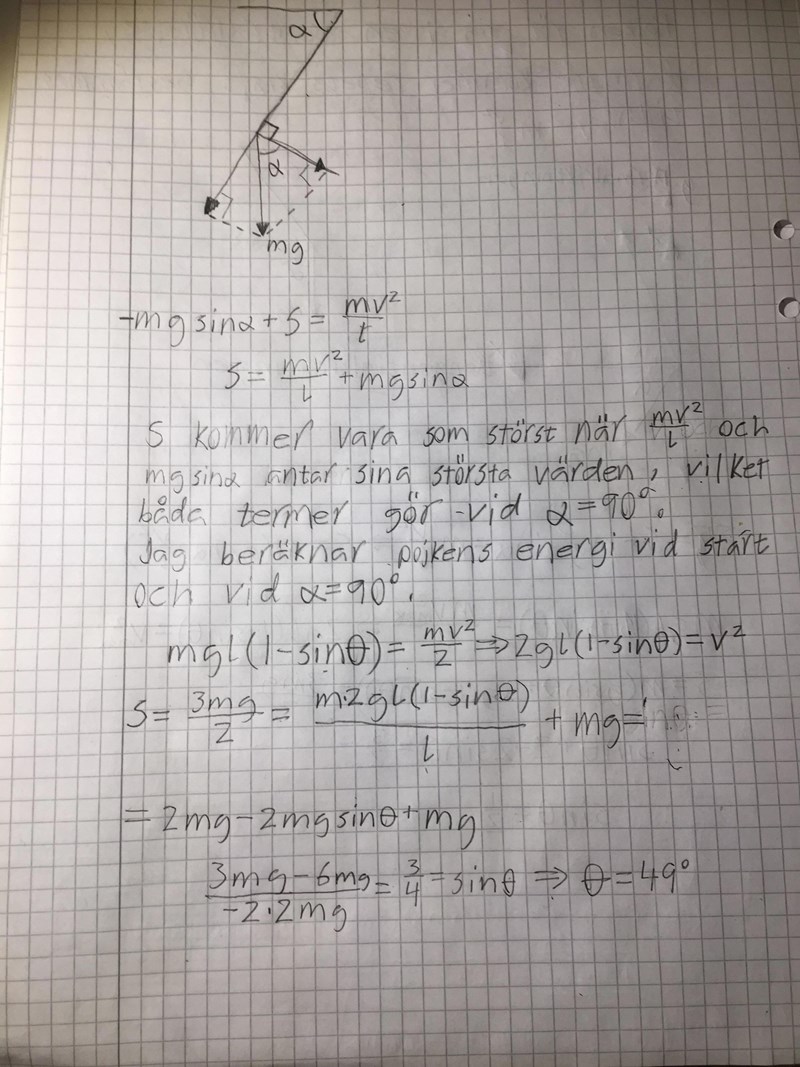 α
α
mg
-mg sinα + S = mv²/t
S = mv²/l + mg sinα
S kommer vara som störst när mv²/l och
mg sinα antar sina största värden, vilket
båda termer gör vid α=90°.
Jag beräknar pojkens energi vid start
och vid α=90°.
mgl(1-sinθ) = mv²/2 ⇒ 2gl(1-sinθ) = v²
S = 3mg/2 = m·2gl(1-sinθ)/l + mg =
= 2mg - 2mg sinθ + mg
3mg - 6mg/-2·2mg = 3/4 = sinθ ⇒ θ = 49°